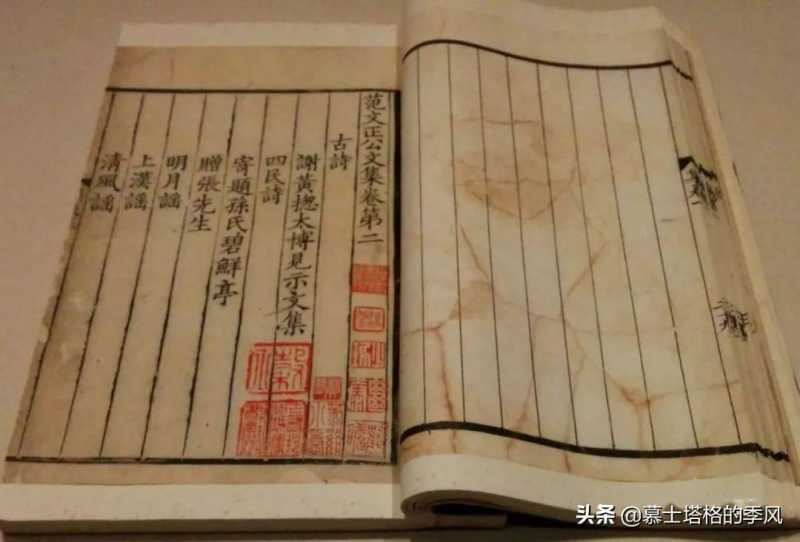 范文正公文集卷第二
古詩
謝黃捴太博見示文集
四民詩
寄題孫氏碧鮮亭
贈張先生
明月謡
上漢謡
清風謡
头条 @慕士塔格的季风